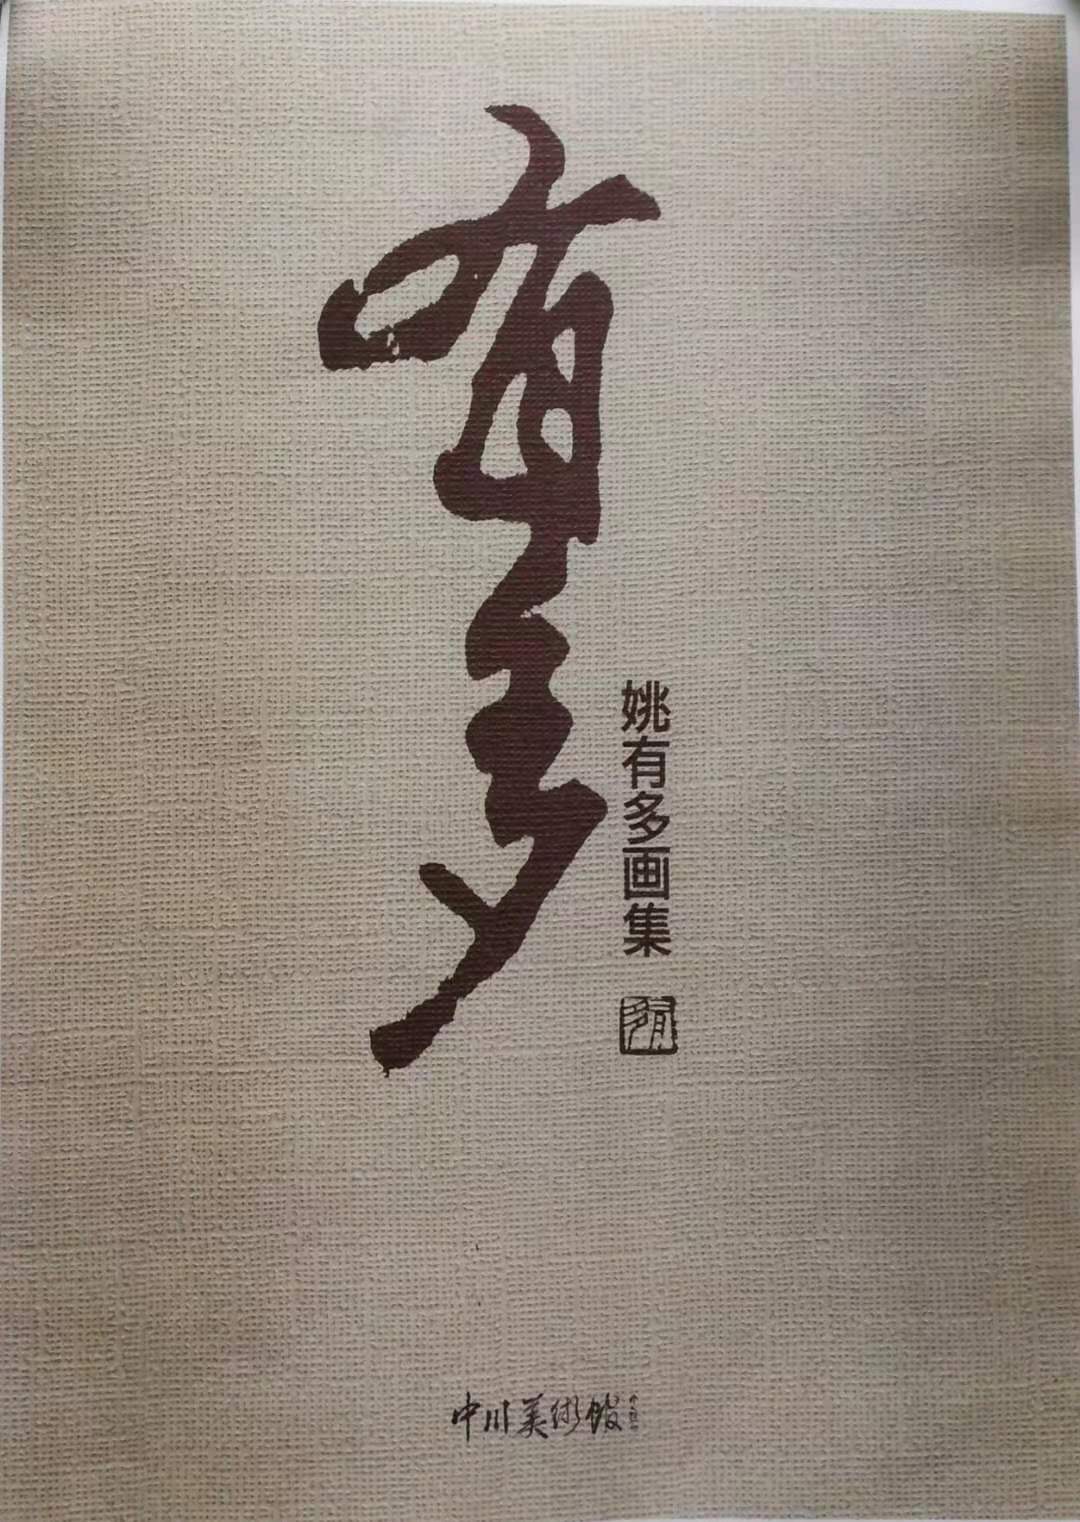 有多
姚有多画集
有多
中川美術館